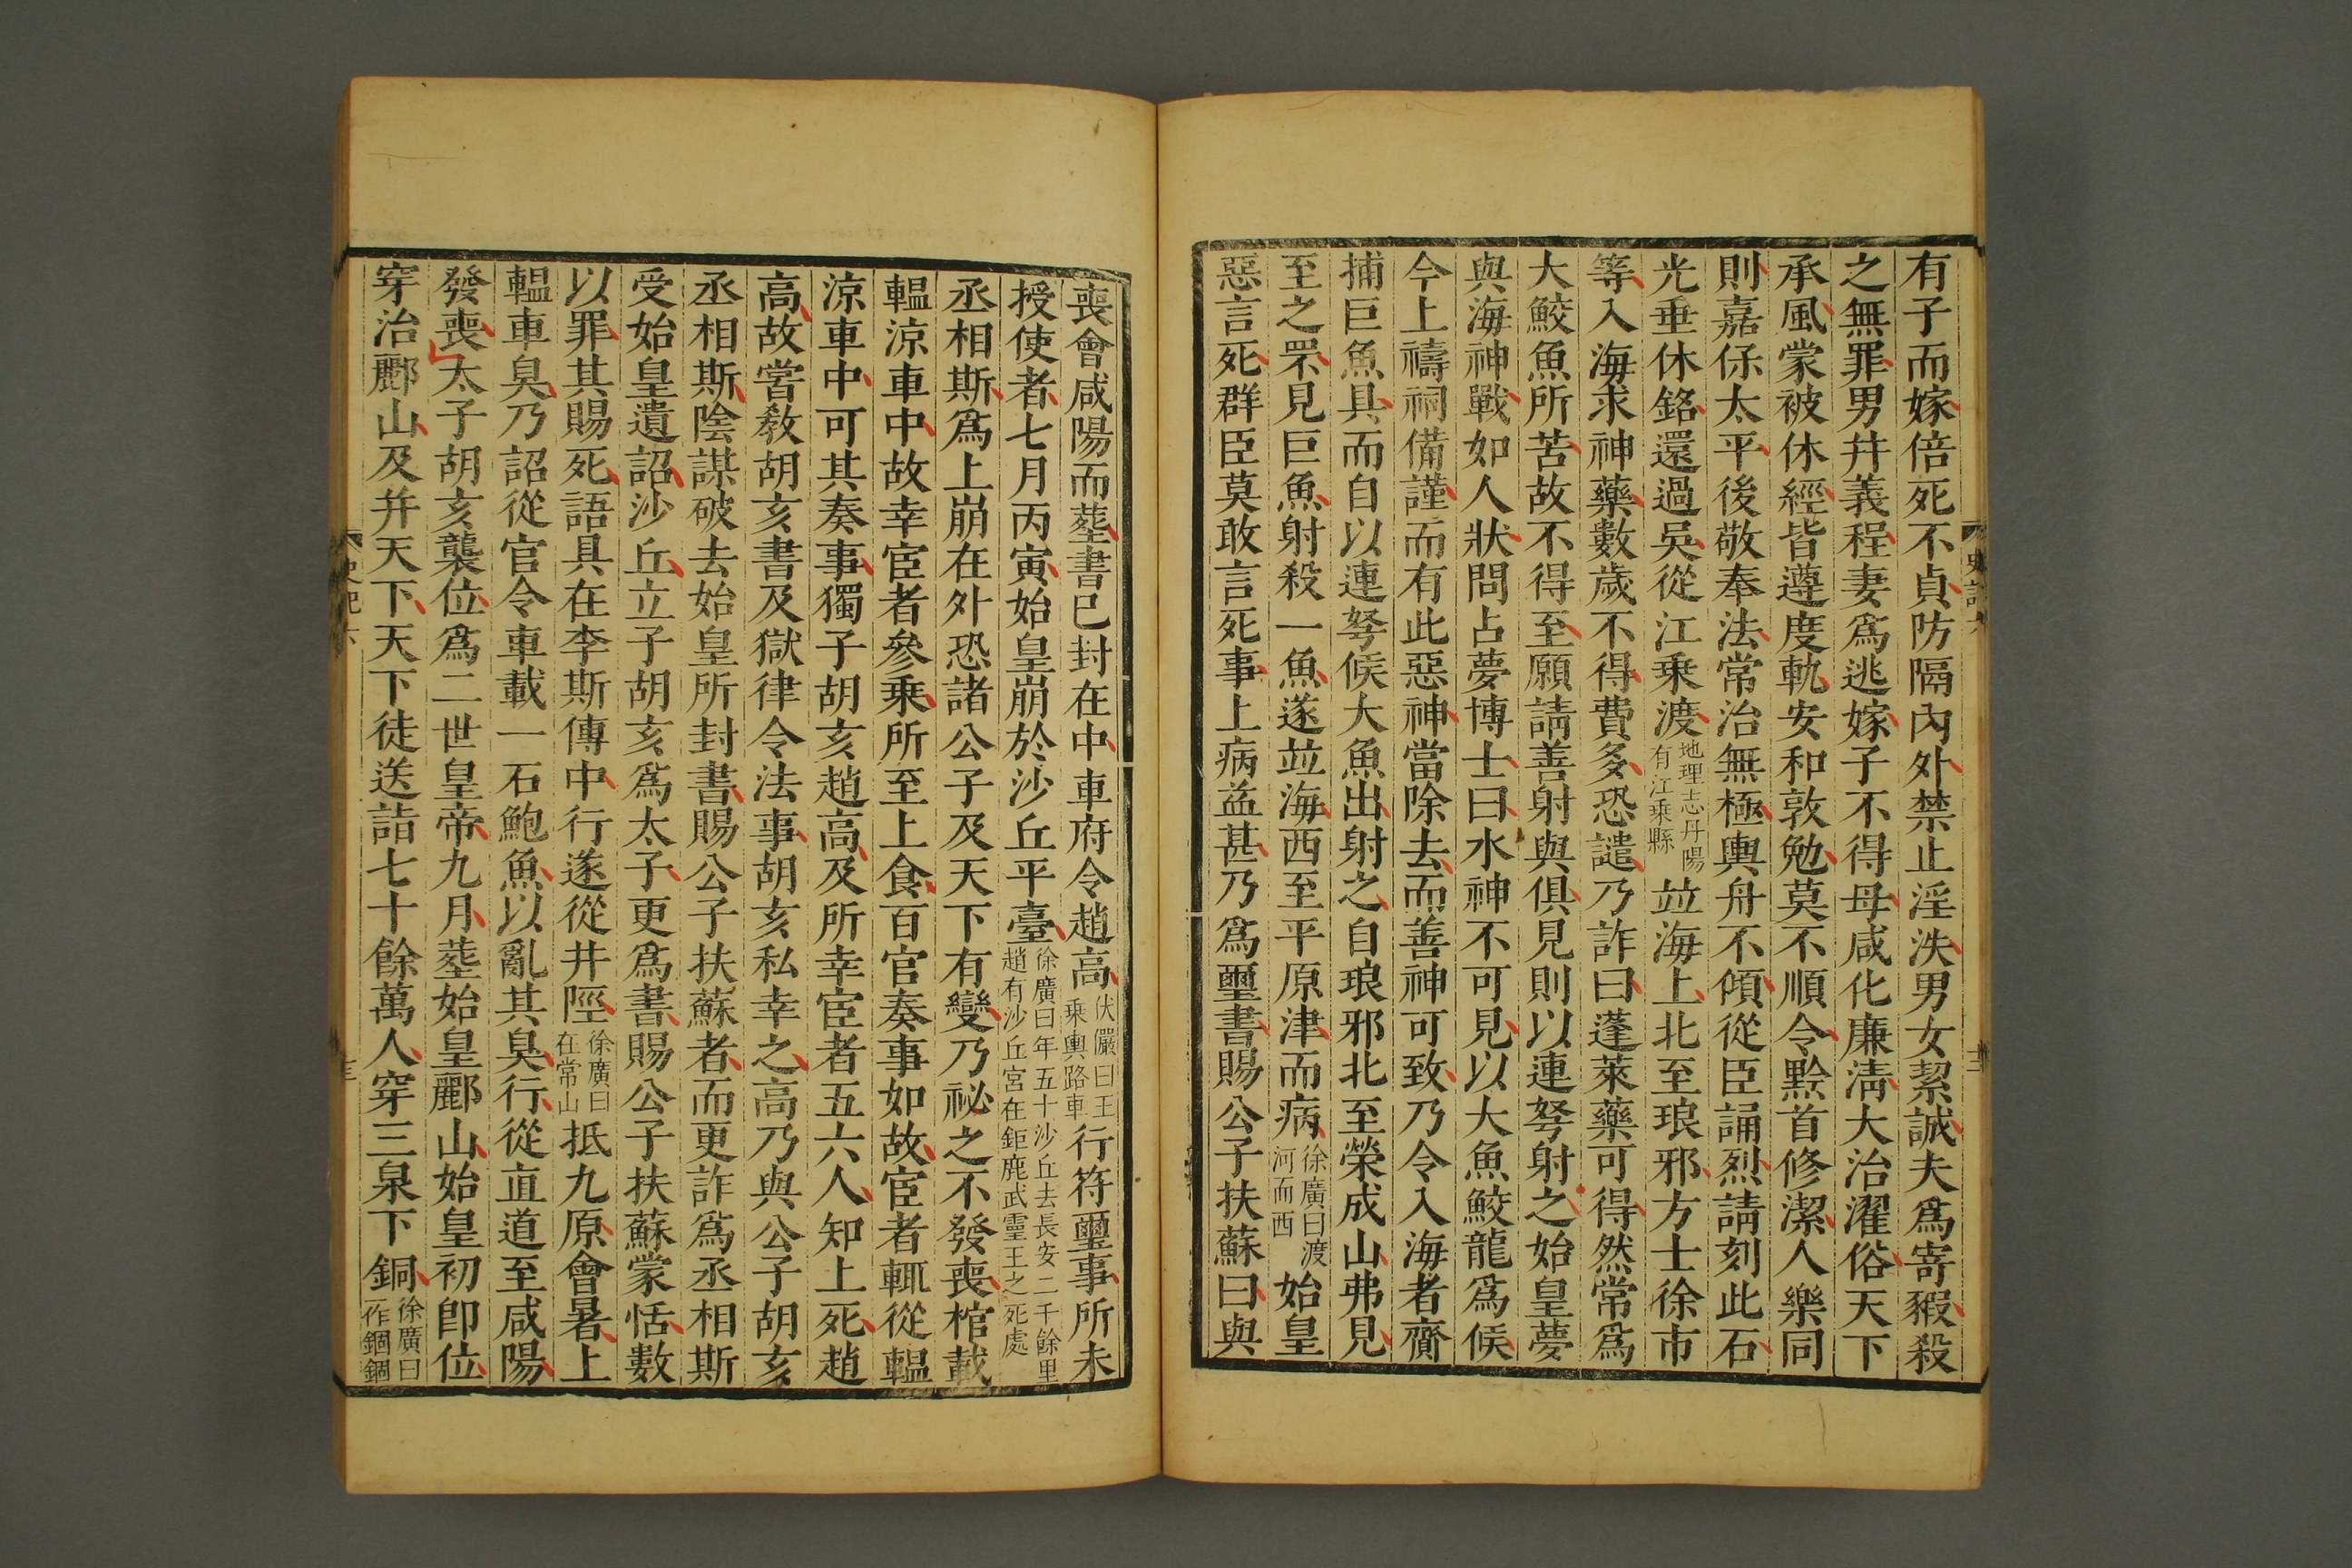 有子而嫁倍死不貞防隔內外禁止淫泆男女絜誠夫爲寄豭殺
之無罪男幷義程妻爲逃嫁子不得母咸化廉淸大治濯俗天下
承風蒙被休經皆遵度軌安和敦勉莫不順令黔首修潔人樂同
則嘉保太平後敬奉法常治無極輿舟不傾從臣誦烈請刻此石
光垂休銘還過吳從江乗渡地理志丹陽有江乗縣竝海上北至琅邪方士徐市
等入海求神藥數歲不得費多恐譴乃詐曰蓬萊藥可得然常爲
大鮫魚所苦故不得至願請善射與俱見則以連弩射之始皇夢
與海神戰如人狀問占夢博士曰水神不可見以大魚鮫龍爲候
今上禱祠備謹而有此惡神當除去而善神可致乃令入海者齎
捕巨魚具而自以連弩候大魚出射之自琅邪北至榮成山弗見
至之罘見巨魚射殺一魚遂竝海西至平原津而病徐廣曰渡河而西始皇
惡言死群臣莫敢言死事上病益甚乃爲璽書賜公子扶蘇曰與
喪會咸陽而葬書已封在中車府令趙高伏儼曰主乗輿路車行符璽事所未
授使者七月丙寅始皇崩於沙丘平臺徐廣曰年五十沙丘去長安二千餘里趙有沙丘宮在鉅鹿武靈王之死處
丞相斯爲上崩在外恐諸公子及天下有變乃祕之不發喪棺載
轀涼車中故幸宦者參乗所至上食百官奏事如故宦者輒從轀
涼車中可其奏事獨子胡亥趙高及所幸宦者五六人知上死趙
高故嘗敎胡亥書及獄律令法事胡亥私幸之高乃與公子胡亥
丞相斯陰謀破去始皇所封書賜公子扶蘇者而更詐爲丞相斯
受始皇遺詔沙丘立子胡亥爲太子更爲書賜公子扶蘇蒙恬數
以罪其賜死語具在李斯傳中行遂從井陘徐廣曰在常山抵九原會暑上
轀車臭乃詔從官令車載一石鮑魚以亂其臭行從直道至咸陽
發喪太子胡亥襲位爲二世皇帝九月葬始皇酈山始皇初卽位
穿治酈山及幷天下天下徒送詣七十餘萬人穿三泉下銅徐廣曰一作錮錮
史記六
史記六